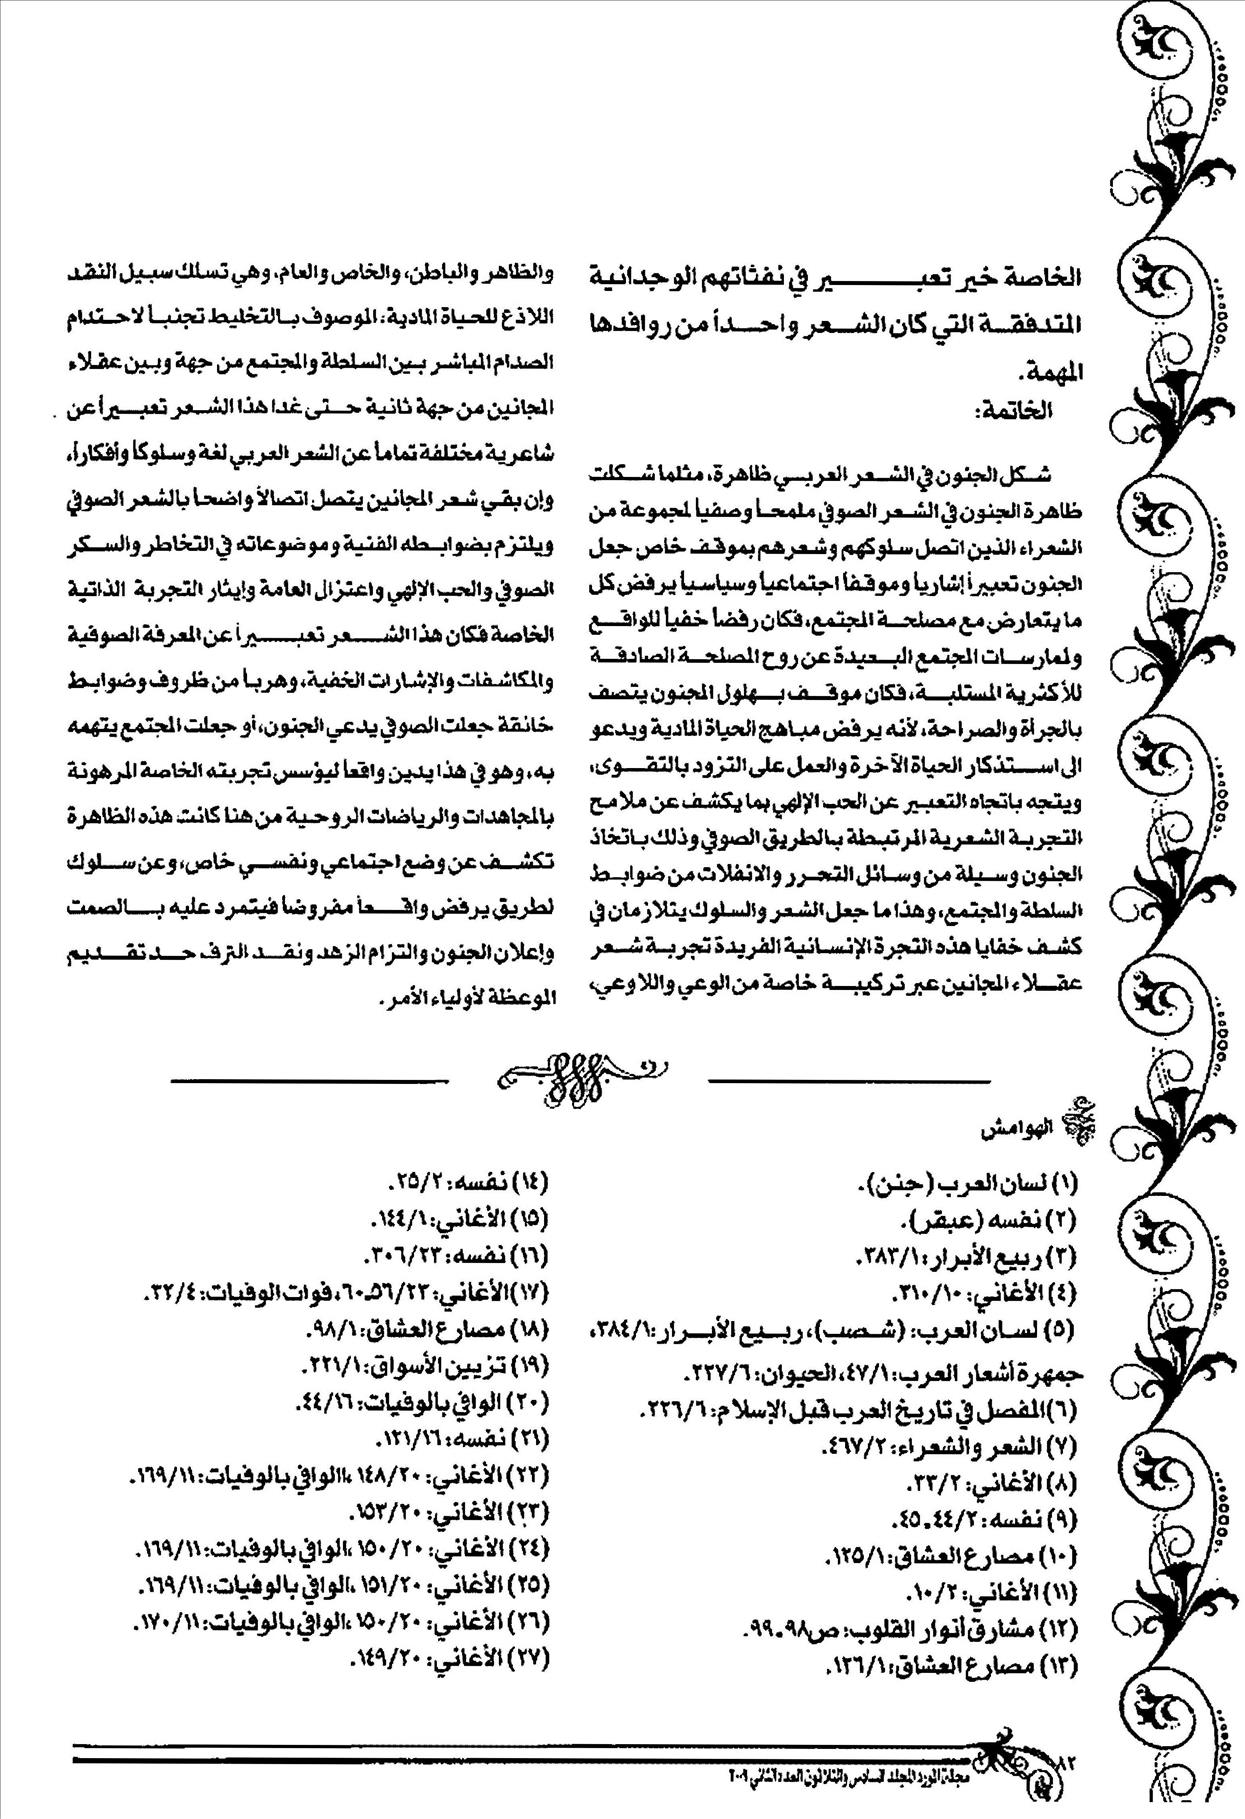 الخاصة خير تعبير في نفثاتهم الوجدانية
المتدفقة التي كان الشعر واحداً من روافدها
المهمة.
الخاتمة:
شكل الجنون في الشعر العربي ظاهرة، مثلما شكلت
ظاهرة الجنون في الشعر الصوفي ملمحاً وصفياً لمجموعة من
الشعراء الذين اتصل سلوكهم وشعرهم بموقف خاص جعل
الجنون تعبيراً إشارياً وموقفاً اجتماعياً وسياسياً يرفض كل
ما يتعارض مع مصلحة المجتمع، فكان رفضاً خفياً للواقع
ولممارسات المجتمع البعيدة عن روح المصلحة الصادقة
للأكثرية المستلبة، فكان موقف بهلول المجنون يتصف
بالجرأة والصراحة، لأنه يرفض مباهج الحياة المادية ويدعو
الى استذكار الحياة الآخرة والعمل على التزود بالتقوى،
ويتجه باتجاه التعبير عن الحب الإلهي بما يكشف عن ملامح
التجربة الشعرية المرتبطة بالطريق الصوفي وذلك باتخاذ
الجنون وسيلة من وسائل التحرر والانفلات من ضوابط
السلطة والمجتمع، وهذا ما جعل الشعر والسلوك يتلازمان في
كشف خفايا هذه التجرة الإنسانية الفريدة تجربة شعر
عقلاء المجانين عبر تركيبة خاصة من الوعي واللاوعي،
والظاهر والباطن، والخاص والعام، وهي تسلك سبيل النقد
اللاذع للحياة المادية، الموصوف بالتخليط تجنباً لاحتدام
الصدام المباشر بين السلطة والمجتمع من جهة وبين عقلاء
المجانين من جهة ثانية حتى غدا هذا الشعر تعبيراً عن
شاعرية مختلفة تماماً عن الشعر العربي لغة وسلوكاً وأفكاراً،
وإن بقي شعر المجانين يتصل اتصالاً واضحاً بالشعر الصوفي
ويلتزم بضوابطه الفنية وموضوعاته في التخاطر والسكر
الصوفي والحب الإلهي واعتزال العامة وإيثار التجربة الذاتية
الخاصة فكان هذا الشعر تعبيراً عن المعرفة الصوفية
والمكاشفات والإشارات الخفية، وهرباً من ظروف وضوابط
خانقة جعلت الصوفي يدعي الجنون، أو جعلت المجتمع يتهمه
به، وهو في هذا يدين واقعاً ليؤسس تجربته الخاصة المرهونة
بالمجاهدات والرياضات الروحية من هنا كانت هذه الظاهرة
تكشف عن وضع اجتماعي ونفسي خاص، وعن سلوك
لطريق يرفض واقعاً مفروضاً فيتمرد عليه بالصمت
وإعلان الجنون والتزام الزهد ونقد الترف حد تقديم
الموعظة لأولياء الأمر.
الهوامش
(١) لسان العرب (جنن).
(٢) نفسه (عبقر).
(٣) ربيع الأبرار: ٣٨٣/١.
(٤) الأغاني: ٣١٠/١٠.
(٥) لسان العرب: (شصب)، ربيع الأبرار: ٣٨٤/١،
جمهرة أشعار العرب: ٤٧/١، الحيوان: ٢٢٧/٦.
(٦) المفصل في تاريخ العرب قبل الإسلام: ٢٢٦/٦.
(٧) الشعر والشعراء: ٤٦٧/٢.
(٨) الأغاني: ٣٣/٢.
(٩) نفسه: ٤٤/٢ـ٤٥.
(١٠) مصارع العشاق: ١٢٥/١.
(١١) الأغاني: ١٠/٢.
(١٢) مشارق أنوار القلوب: ص٩٨ـ٩٩.
(١٣) مصارع العشاق: ١٢٦/١.
(١٤) نفسه: ٢٥/٢.
(١٥) الأغاني: ١٤٤/١.
(١٦) نفسه: ٣٠٦/٢٣.
(١٧) الأغاني: ٥٦/٢٣ـ٦٠، فوات الوفيات: ٣٢/٤.
(١٨) مصارع العشاق: ٩٨/١.
(١٩) تزيين الأسواق: ٢٢١/١.
(٢٠) الوافي بالوفيات: ٤٤/١٦.
(٢١) نفسه: ١٢١/١٦.
(٢٢) الأغاني: ١٤٨/٢٠، الوافي بالوفيات: ١٦٩/١١.
(٢٣) الأغاني: ١٥٣/٢٠.
(٢٤) الأغاني: ١٥٠/٢٠، الوافي بالوفيات: ١٦٩/١١.
(٢٥) الأغاني: ١٥١/٢٠، الوافي بالوفيات: ١٦٩/١١.
(٢٦) الأغاني: ١٥٠/٢٠، الوافي بالوفيات: ١٧٠/١١.
(٢٧) الأغاني: ١٤٩/٢٠.
٨٢
مجلة المورد المجلد السادس والثلاثون العدد الثاني ٢٠٠٩